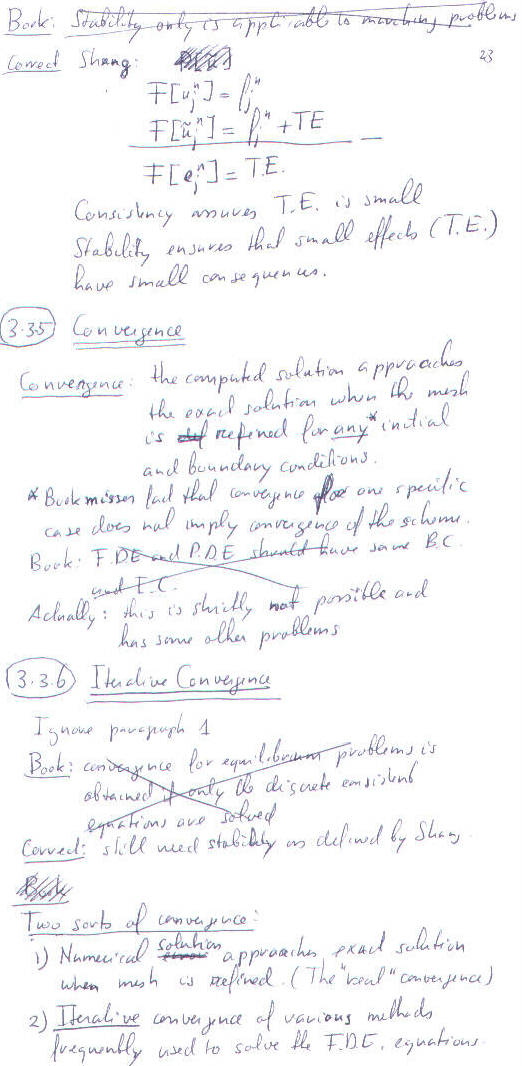 Book: Stability only is applicable to marching problems
23
Correct Shang:
F[u_j^n] = f_j^n
F[ũ_j^n] = f_j^n + TE
F[e_j^n] = T.E.
Consistency assures T.E. is small
Stability ensures that small effects (T.E.)
have small consequences.
3.35 Convergence
Convergence: the computed solution approaches
the exact solution when the mesh
is refined for any* initial
and boundary conditions.
* Book misses fact that convergence for one specific
case does not imply convergence of the scheme.
Book: F.DE and P.DE should have same B.C.
and I.C.
Actually: this is strictly not possible and
has some other problems
3.3.6 Iterative Convergence
Ignore paragraph 1
Book: convergence for equilibrium problems is
obtained if only the discrete consistent
equations are solved
Correct: still need stability as defined by Shang.
Two sorts of convergence:
1) Numerical solution approaches exact solution
when mesh is refined. (The "real" convergence)
2) Iterative convergence of various methods
frequently used to solve the F.D.E. equations.